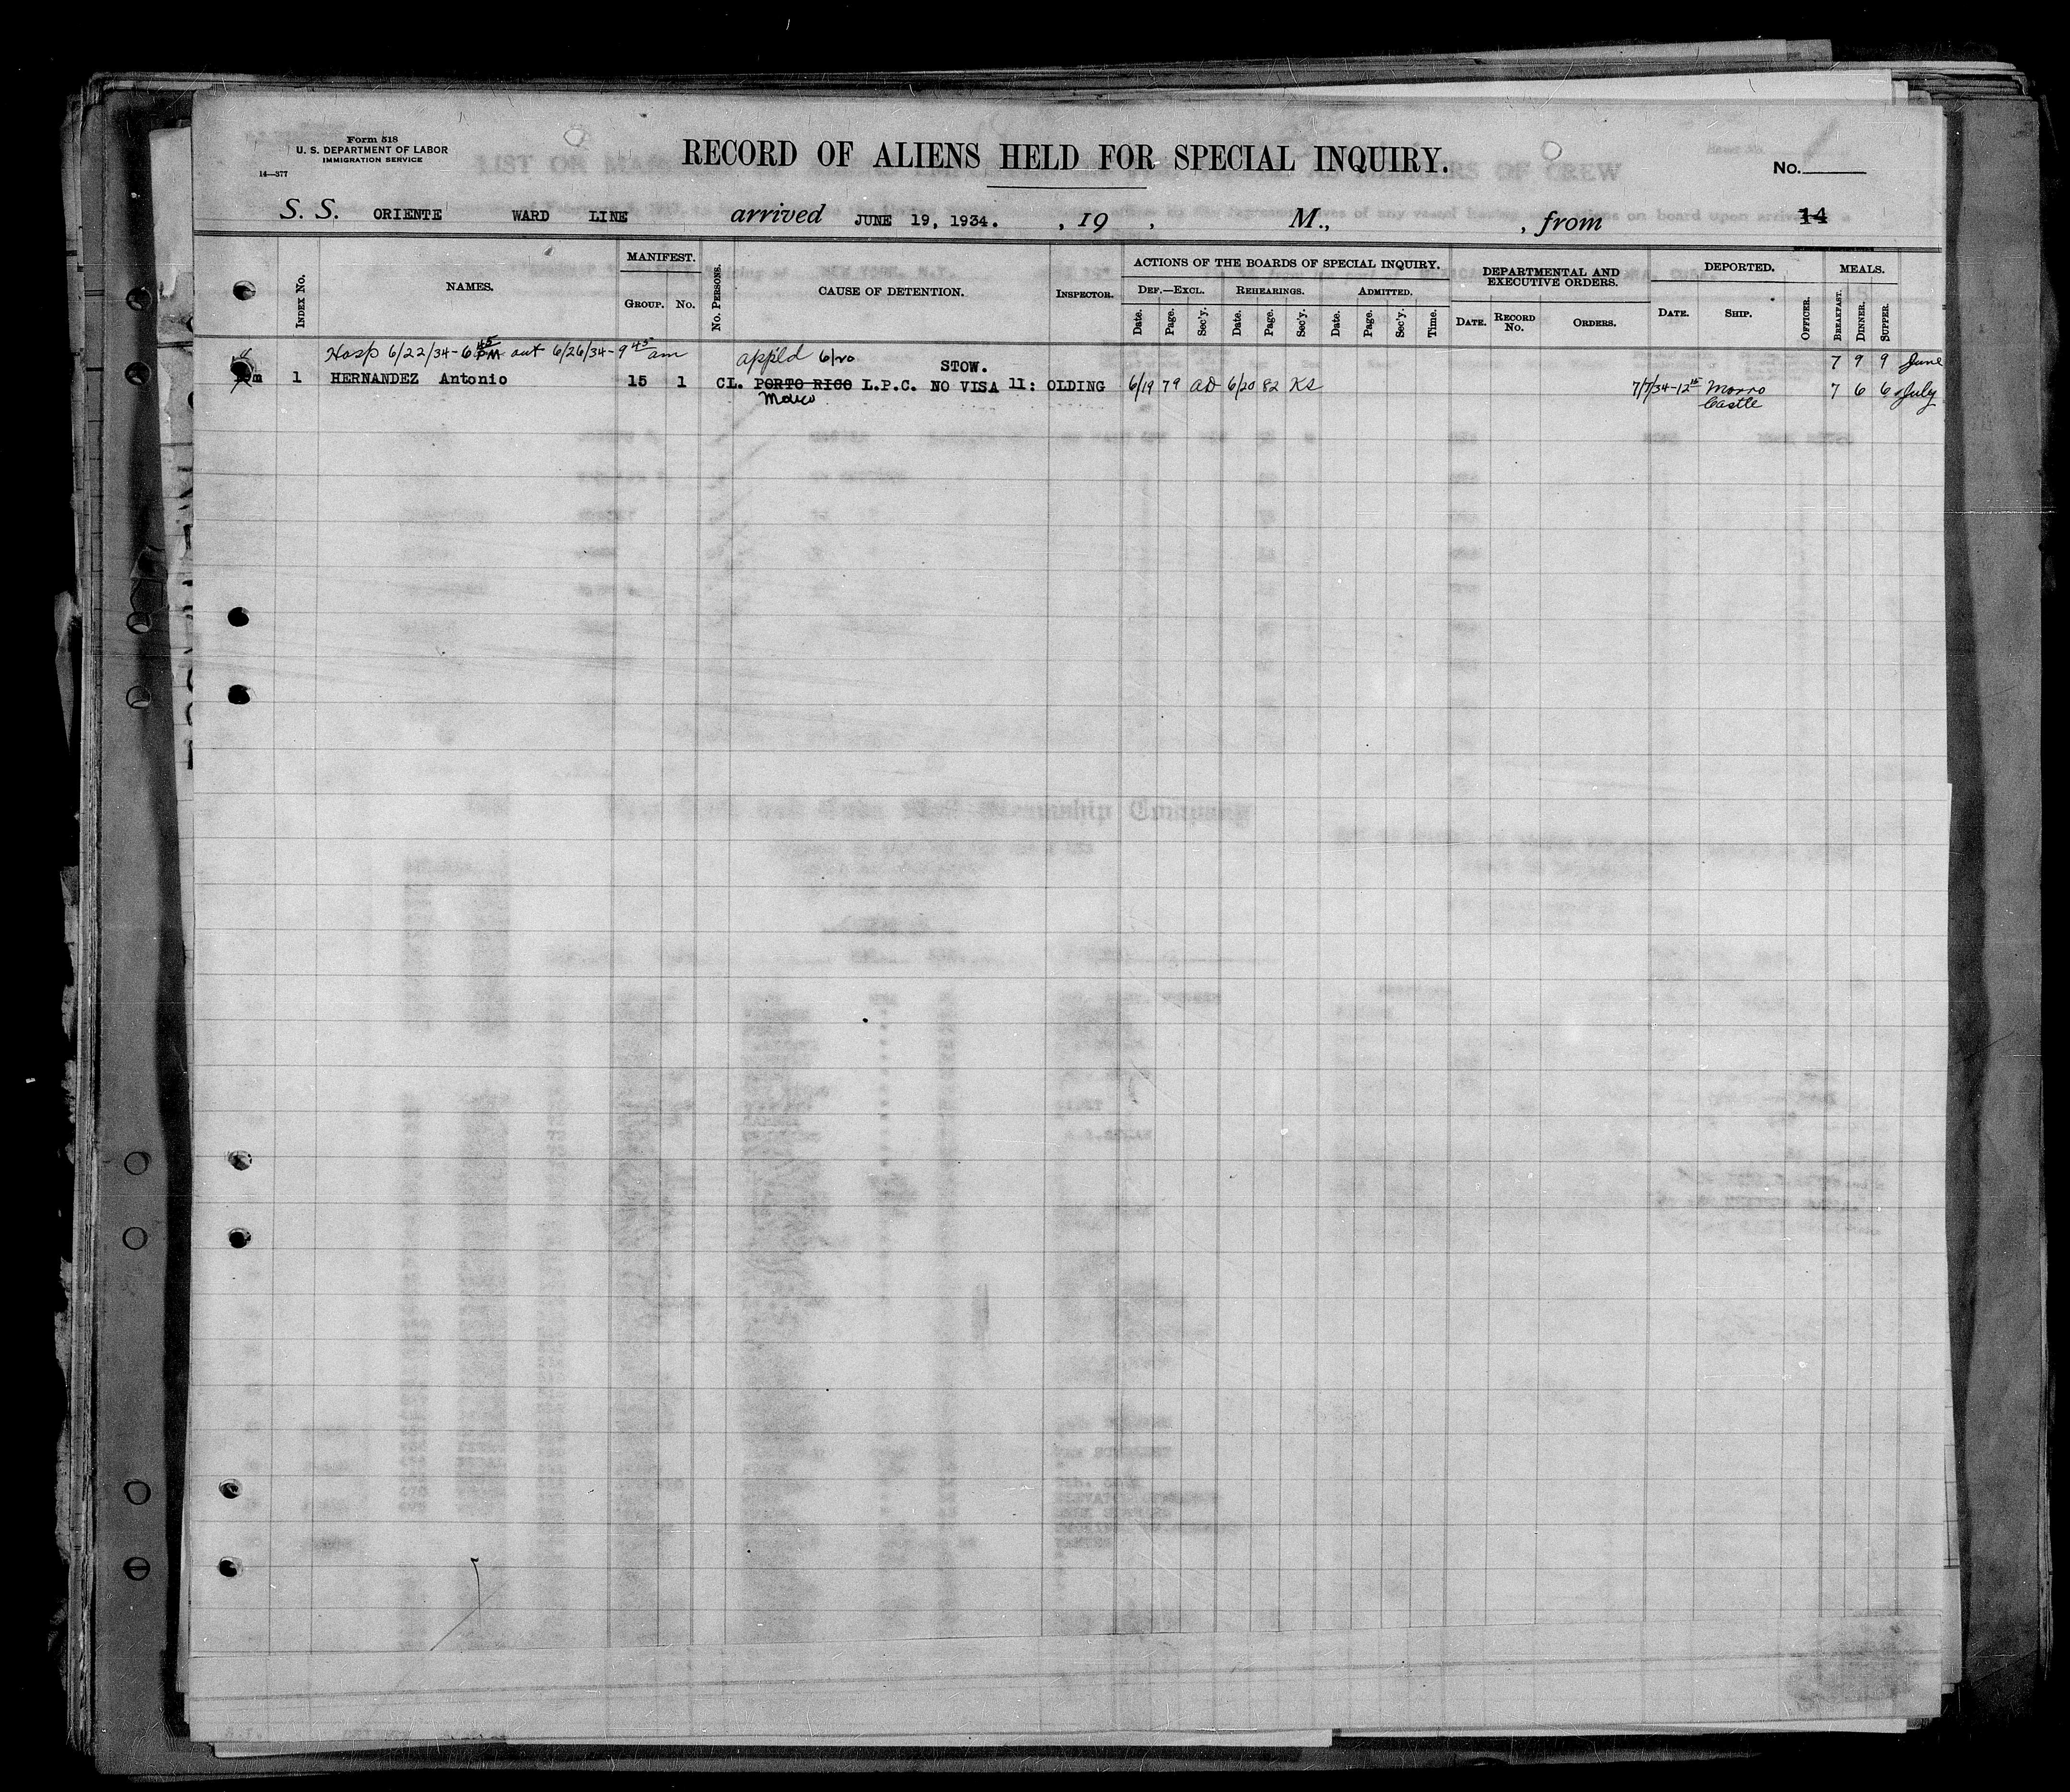 Form 518
U. S. DEPARTMENT OF LABOR
IMMIGRATION SERVICE
14—377
RECORD OF ALIENS HELD FOR SPECIAL INQUIRY.
No.
S. S. ORIENTE WARD LINE arrived JUNE 19, 1934. , 19 , M., , from 14
INDEX No. NAMES. MANIFEST. GROUP. No. No. PERSONS. CAUSE OF DETENTION. INSPECTOR.
ACTIONS OF THE BOARDS OF SPECIAL INQUIRY.
DEF.—EXCL. REHEARINGS. ADMITTED.
Date. Page. Sec'y. Date. Page. Sec'y. Date. Page. Sec'y. Time.
DEPARTMENTAL AND EXECUTIVE ORDERS.
DATE. RECORD No. ORDERS.
DEPORTED.
DATE. SHIP. OFFICER.
MEALS.
BREAKFAST. DINNER. SUPPER.
Hosp 6/22/34-6 45 PM out 6/26/34-9 45 am app'ld 6/20 STOW. 7 9 9 June
m 1 HERNANDEZ Antonio 15 1 CL. PORTO RICO L.P.C. NO VISA 11: OLDING 6/19 79 AD 6/20 82 KS 7/7/34-12 15 Morro Castle 7 6 6 July